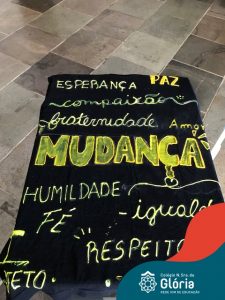 ESPERANÇA PAZ
compaixão
fraternidade Amor
MUDANÇA
HUMILDADE
FÉ - iguald
RESPEITO
TETO
Colégio N. Sra. da
Glória
REDE ICM DE EDUCAÇÃO